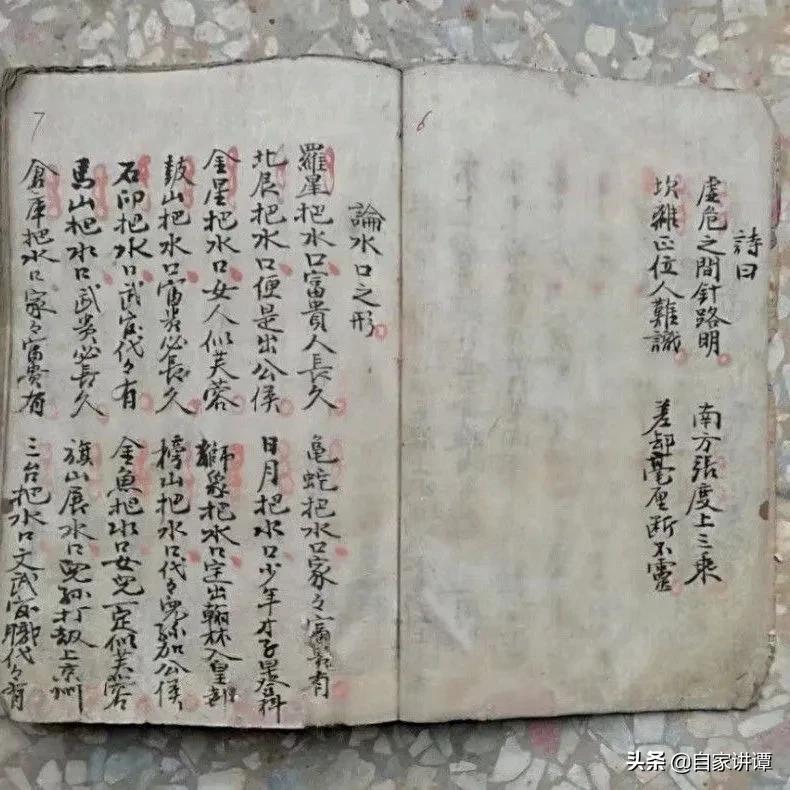 6
詩曰
虛危之間針路明 南方張度上三乘
坎離正位人難識 差却毫厘斷不靈
7
論水口之形
羅星把水口富貴人長久 龜蛇把水口家々富有
北辰把水口便是出公侯 日月把水口少年才子登科
金星把水口女人似芙蓉 獅象把水口定出翰林入皇
鼓山把水口富贵必長久 榜山把水口代々兒孫加公侯
石印把水口武官代々有 金魚把水口女兒一定似芙蓉
馬山把水口武贵必長久 旗山展水口兒孫打上京州
倉庫把水口家々富貴有 三台把水口文武官職代々有
头条 @自家讲谭